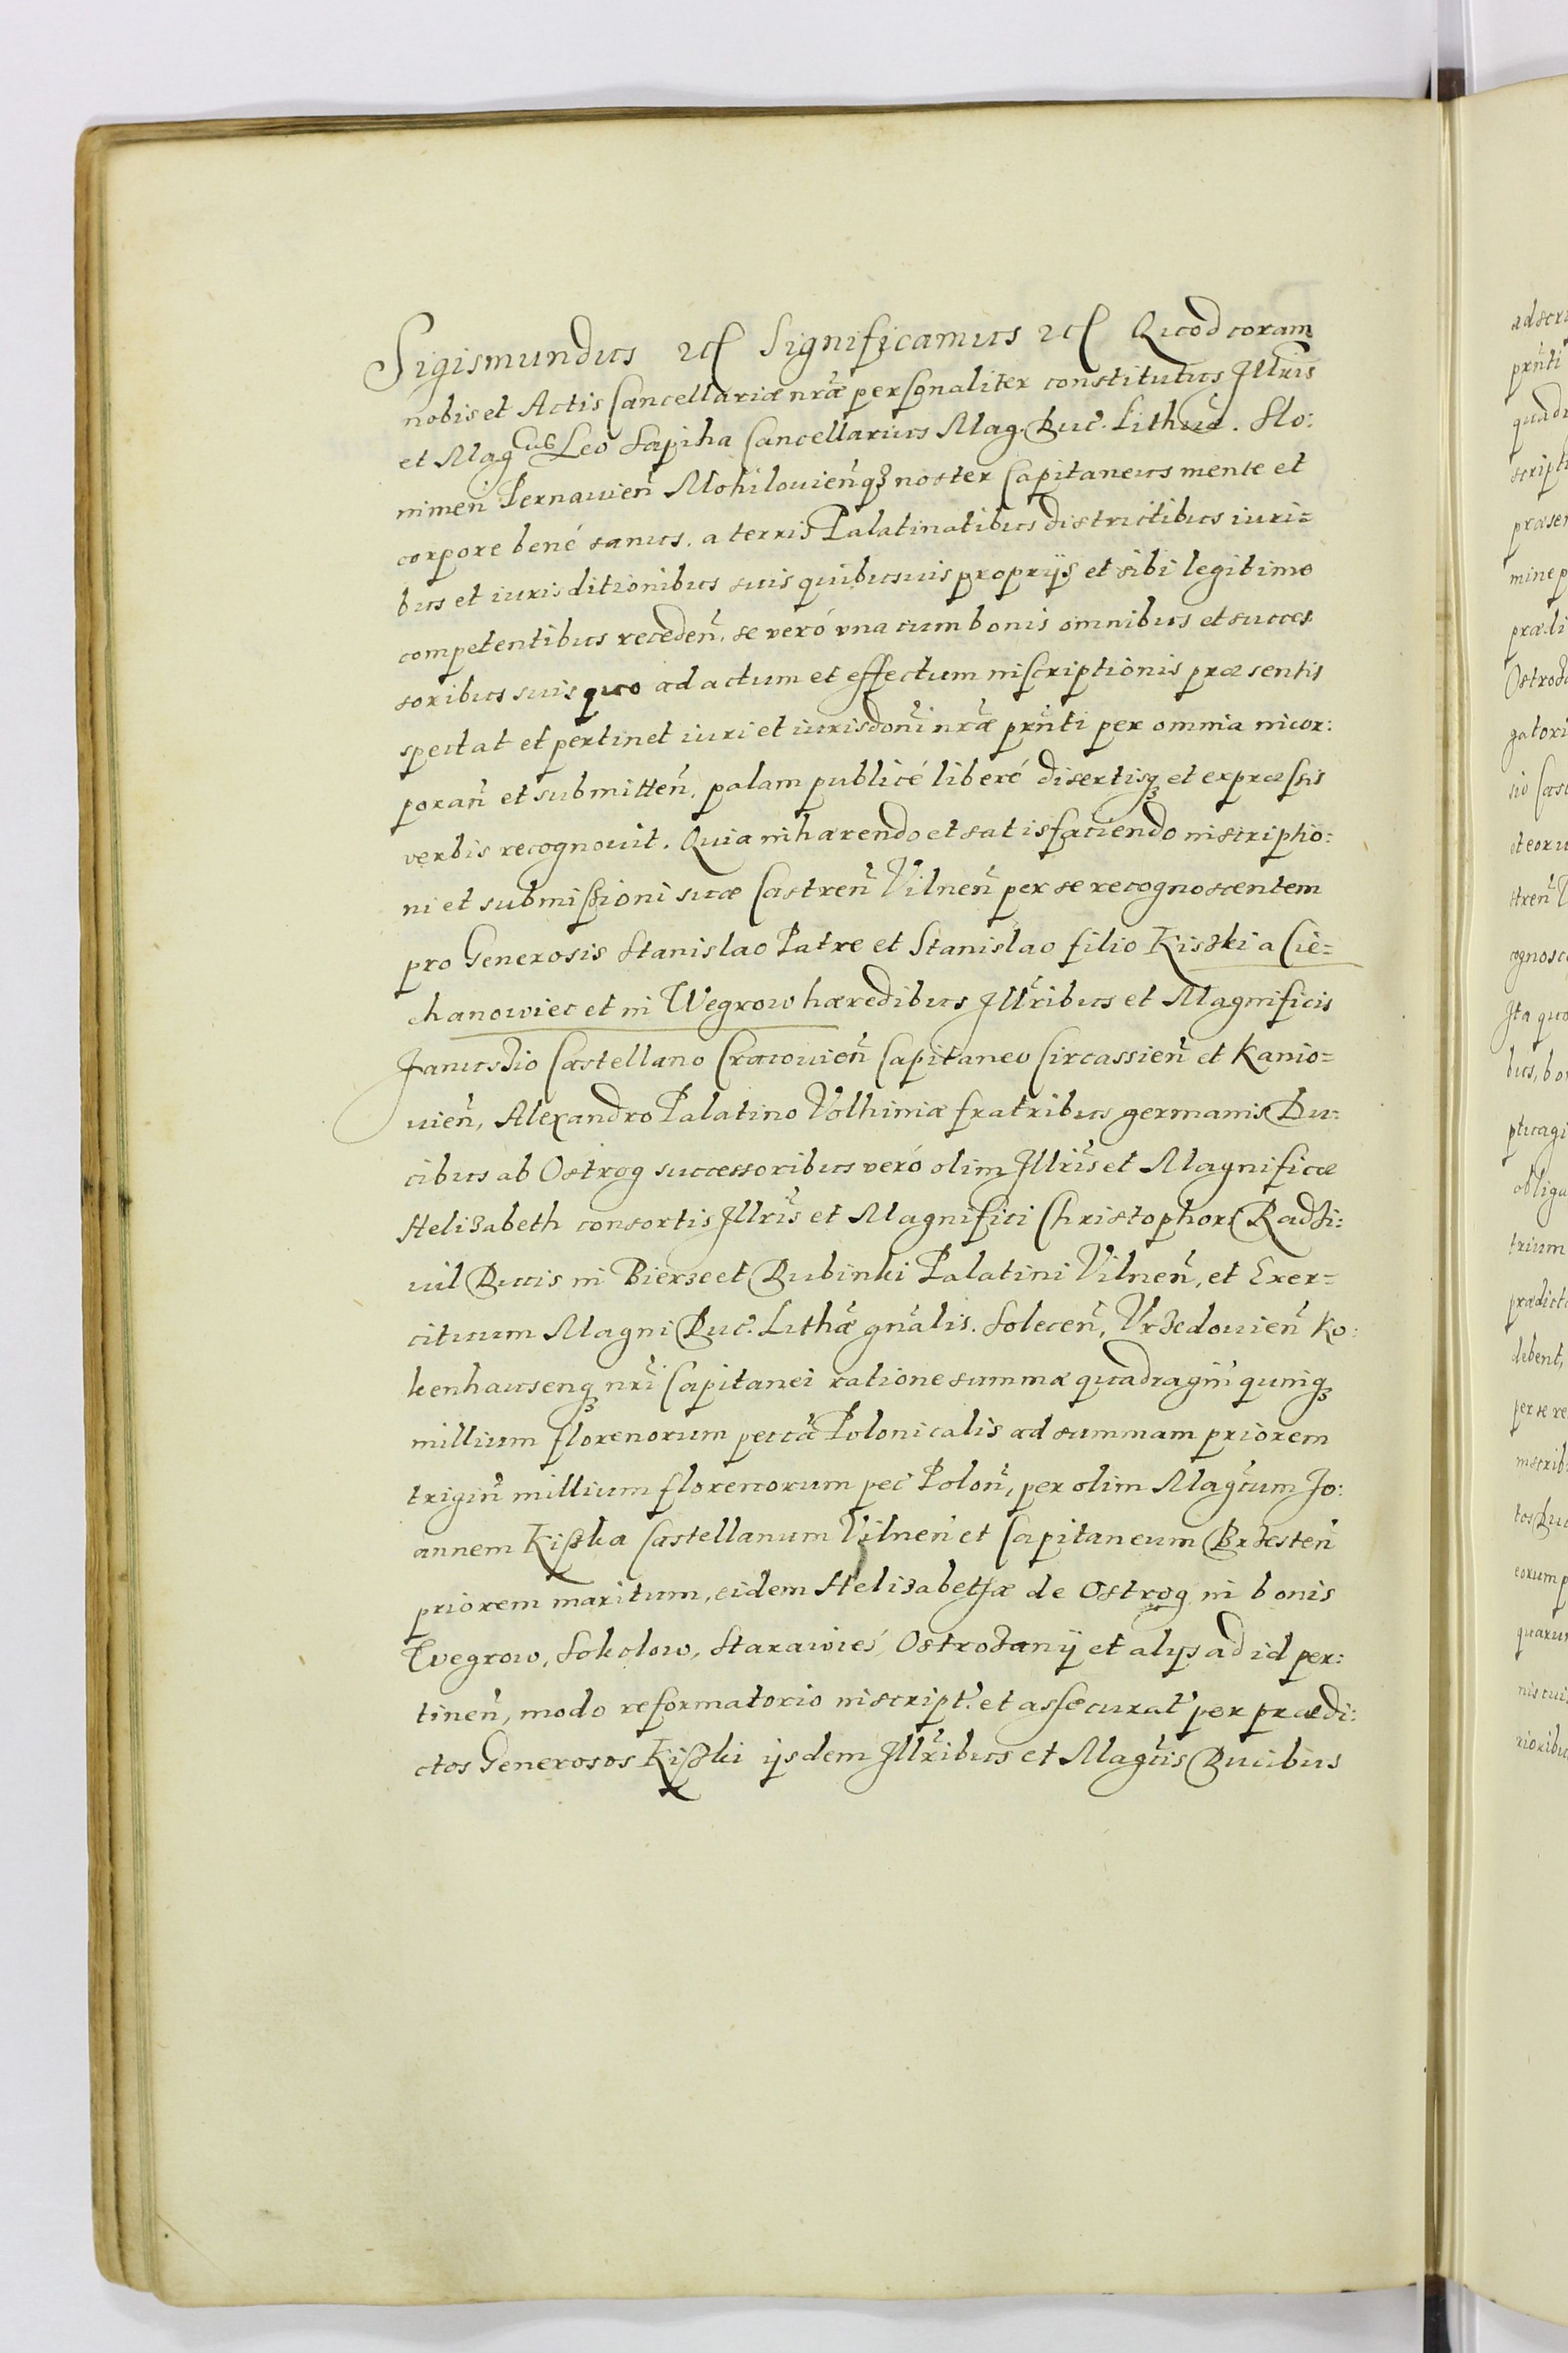 Sigismundus etc Significamus etc Quod coram
nobis et Actis Cancellariæ nr̃æ personaliter constitutus Illris
et Mag^cus Leo Sapiha Cancellarius Mag. Duc. Lithuæ. Slo:
nimen̄ Pernauien̄ Mohilouien̄q₃ noster Capitaneus mente et
corpore bené sanus. a terris Palatinatibus districtibus iuri=
bus et iurisditionibus suis quibusuis proprijs et sibi legitimo
competentibus receden̄. se veró vna cum bonis omnibus et succes
soribus suis quo ad actum et effectum inscriptionis præsentis
spectat et pertinet iuri et iurisdoni nr̃æ prn̄ti per omnia incor:
poran̄ et submitten̄. palam publicé liberé disertisq₃ et expræssis
verbis recognouit. Quia inhærendo et satisfaciendo inscriptio:
ni et submissioni suæ Castren̄ Vilnen̄ per se recognoscentem
pro Generosis Stanislao Patre et Stanislao filio Kiszki a Cie=
chanowiec et in Wegrow hæredibus Illribus et Magnificis
Janussio Castellano Cracouien̄ Capitaneo Circassien̄ et Kanio=
uien̄, Alexandro Palatino Volhiniæ fratribus germanis Du:
cibus ab Ostrog successoribus veró olim Illris et Magnificæ
Helizabeth consortis Illris et Magnifici Christophori Radzi:
uil Ducis in Bierze et Dubinki Palatini Vilnen̄, et Exer=
cituum Magni Duc. Lithæ gn̄alis. Solecen̄, Vrzedouien̄ Ko:
kenhausenq₃ nri Capitanei ratione summæ quadragin̄ quinq₃
millium florenorum pecuæ Polonicalis ad summam priorem
trigin̄ millium florenorum pec Polon̄, per olim Magcum Jo:
annem Kiszka Castellanum Vilnen̄ et Capitaneum Brzesten̄
priorem maritum, eidem Helizabethæ de Ostrog in bonis
Wegrow, Sokolow, Starawieś, Ostrozany et alijs ad id per:
tinen̄, modo reformatorio inscript. et assecurat per prædi:
ctos Generosos Kiszki ijsdem Illribus et Magcis Ducibus